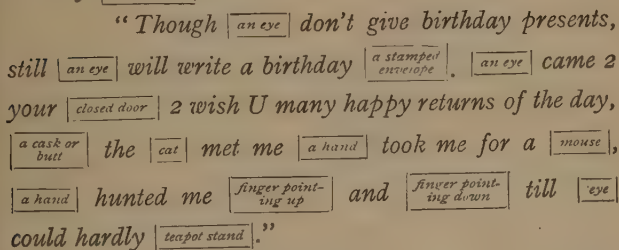 "Though an eye don't give birthday presents,
still an eye will write a birthday a stamped envelope. an eye came 2
your closed door 2 wish U many happy returns of the day,
a cask or butt the cat met me a hand took me for a mouse,
a hand hunted me finger point-ing up and finger point-ing down till eye
could hardly teapot stand."